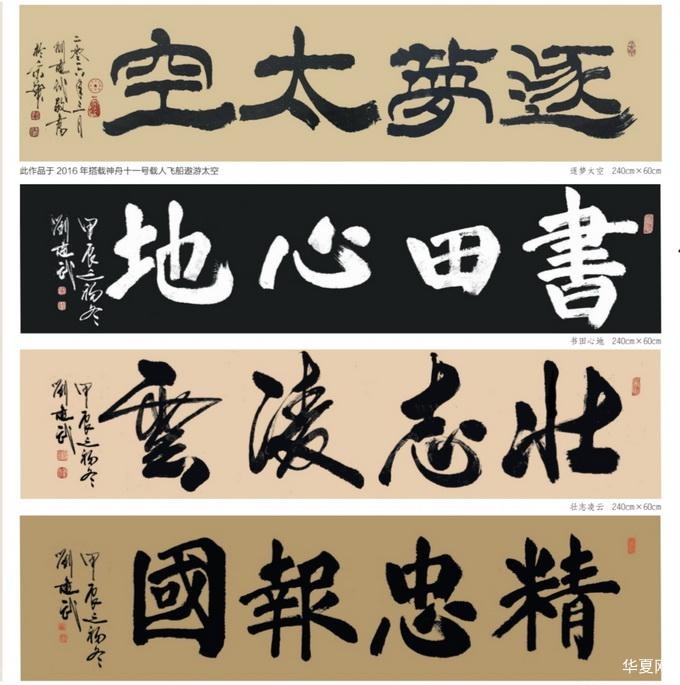 逐夢太空
二零一六年三月
劉建武敬書
於京華
此作品于 2016 年搭载神舟十一号载人飞船遨游太空
逐梦太空 240cm×60cm
書田心地
甲辰之初冬
劉建武
书田心地 240cm×60cm
壯志凌雲
甲辰之初冬
劉建武
壮志凌云 240cm×60cm
精忠報國
甲辰之初冬
劉建武
华夏